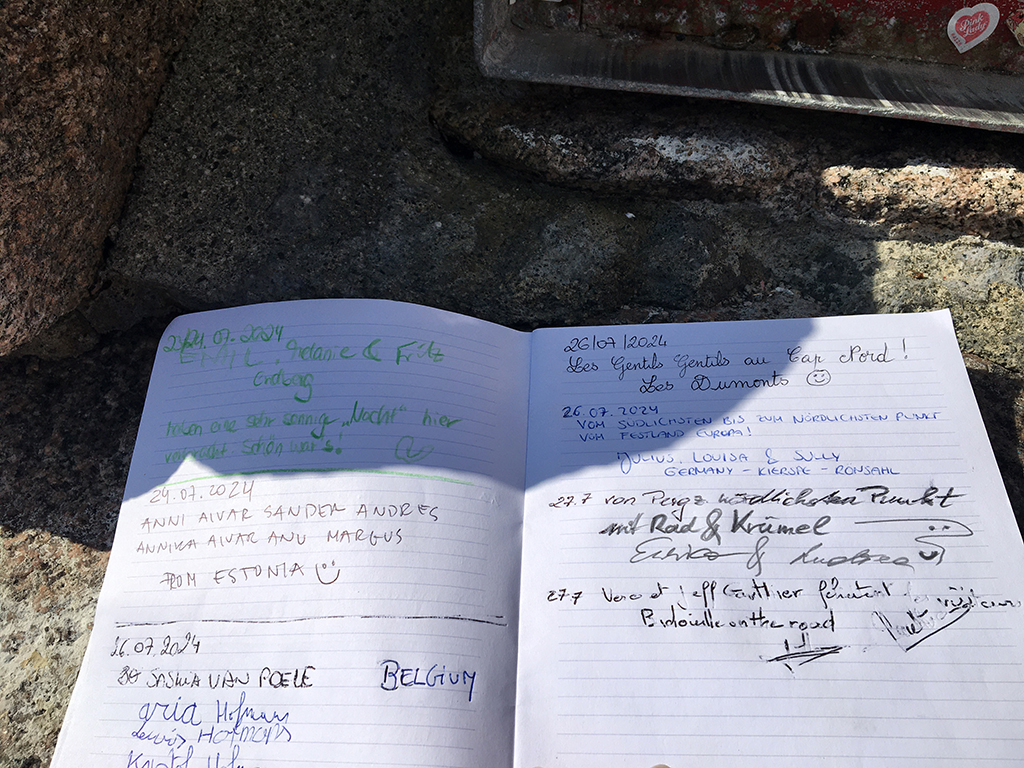 23/24.07.2024
Melanie & Fritz
Erdweg
haben eine sehr sonnige „Nacht" hier
verbracht schön war's!
24.07.2024
ANNI AIVAR SANDER ANDRES
ANNIKA AIVAR ANU MARGUS
FROM ESTONIA
26.07.2024
SASKIA VAN POELE BELGIUM
Hofmans
Lewis HOFMANS
Kristof
26/07/2024
Les Gentils Gentils au Cap Nord !
Les Dumonts
26.07.2024
VOM SÜDLICHSTEN BIS ZUM NÖRDLICHSTEN PUNKT
VOM FESTLAND EUROPA!
JULIUS, LOUISA & SULLY
GERMANY - KIERSPE - RÖNSAHL
27.7 von nördlichsten Punkt
mit Rad & Krümel
& Andrea
27.7 Vera et Jeff Gauthier
Bidouille on the road
Pink Lady